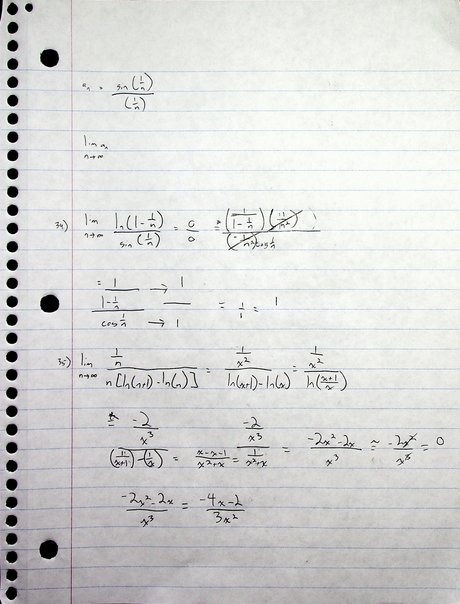 aₙ = sin(1/n) / (1/n)
lim aₙ
n→∞
34) lim n→∞ ln(1 - 1/n) / sin(1/n) = 0/0 = (1/(1 - 1/n)) (1/n²) / (-1/n²) cos 1/n
= 1 / (1 - 1/n) / cos 1/n → 1 / → 1 = 1/1 = 1
35) lim n→∞ (1/n) / n[ln(n+1) - ln(n)] = (1/x²) / (ln(x+1) - ln(x)) = (1/x²) / ln((x+1)/x)
= (-2/x³) / ((1/(x+1)) - (1/x)) = (-2/x³) / ((x-x-1)/(x²+x)) = 1/(x²+x) = (-2x²-2x)/x³ ≈ -2x²/x³ = 0
(-2x²-2x)/x³ = (-4x-2)/3x²